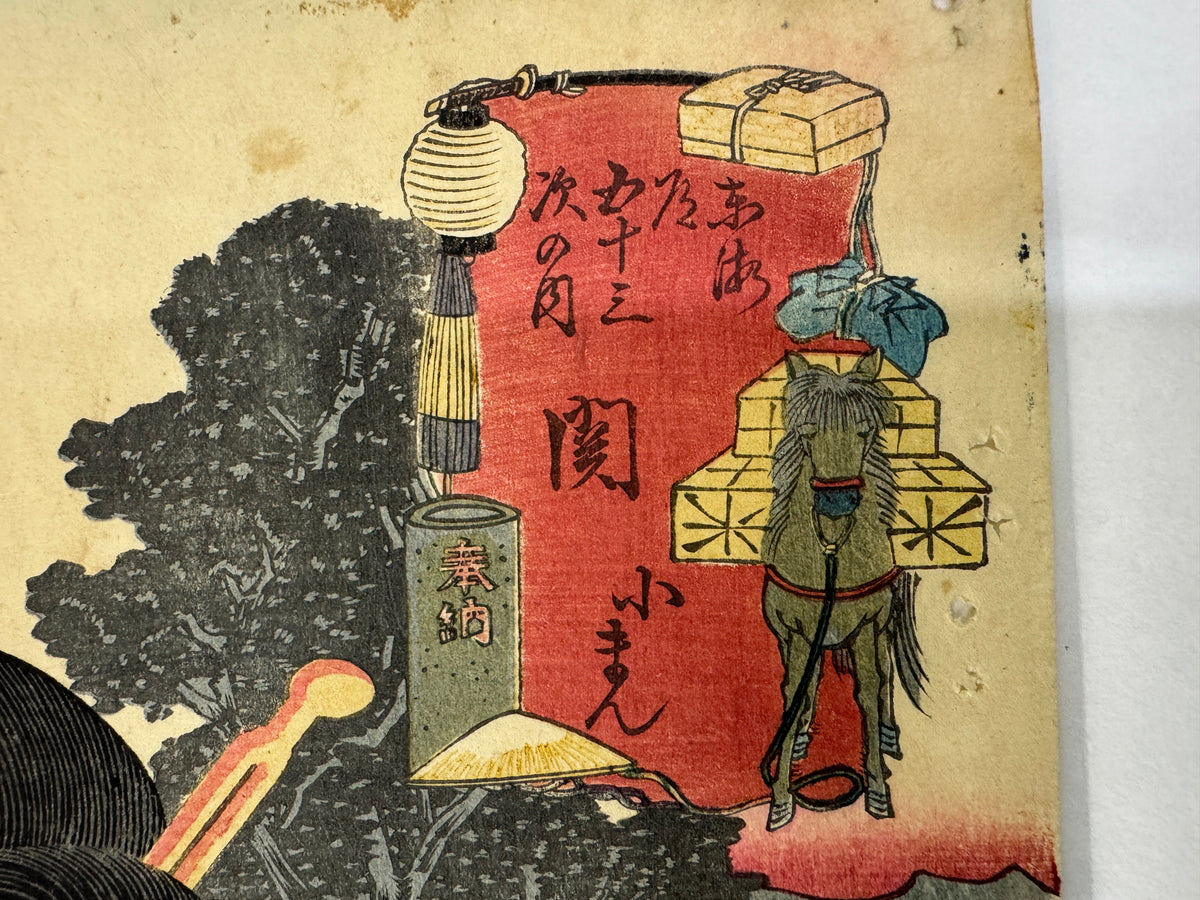 東海
道
五十三
次の内
関
小まん
奉納
米
米